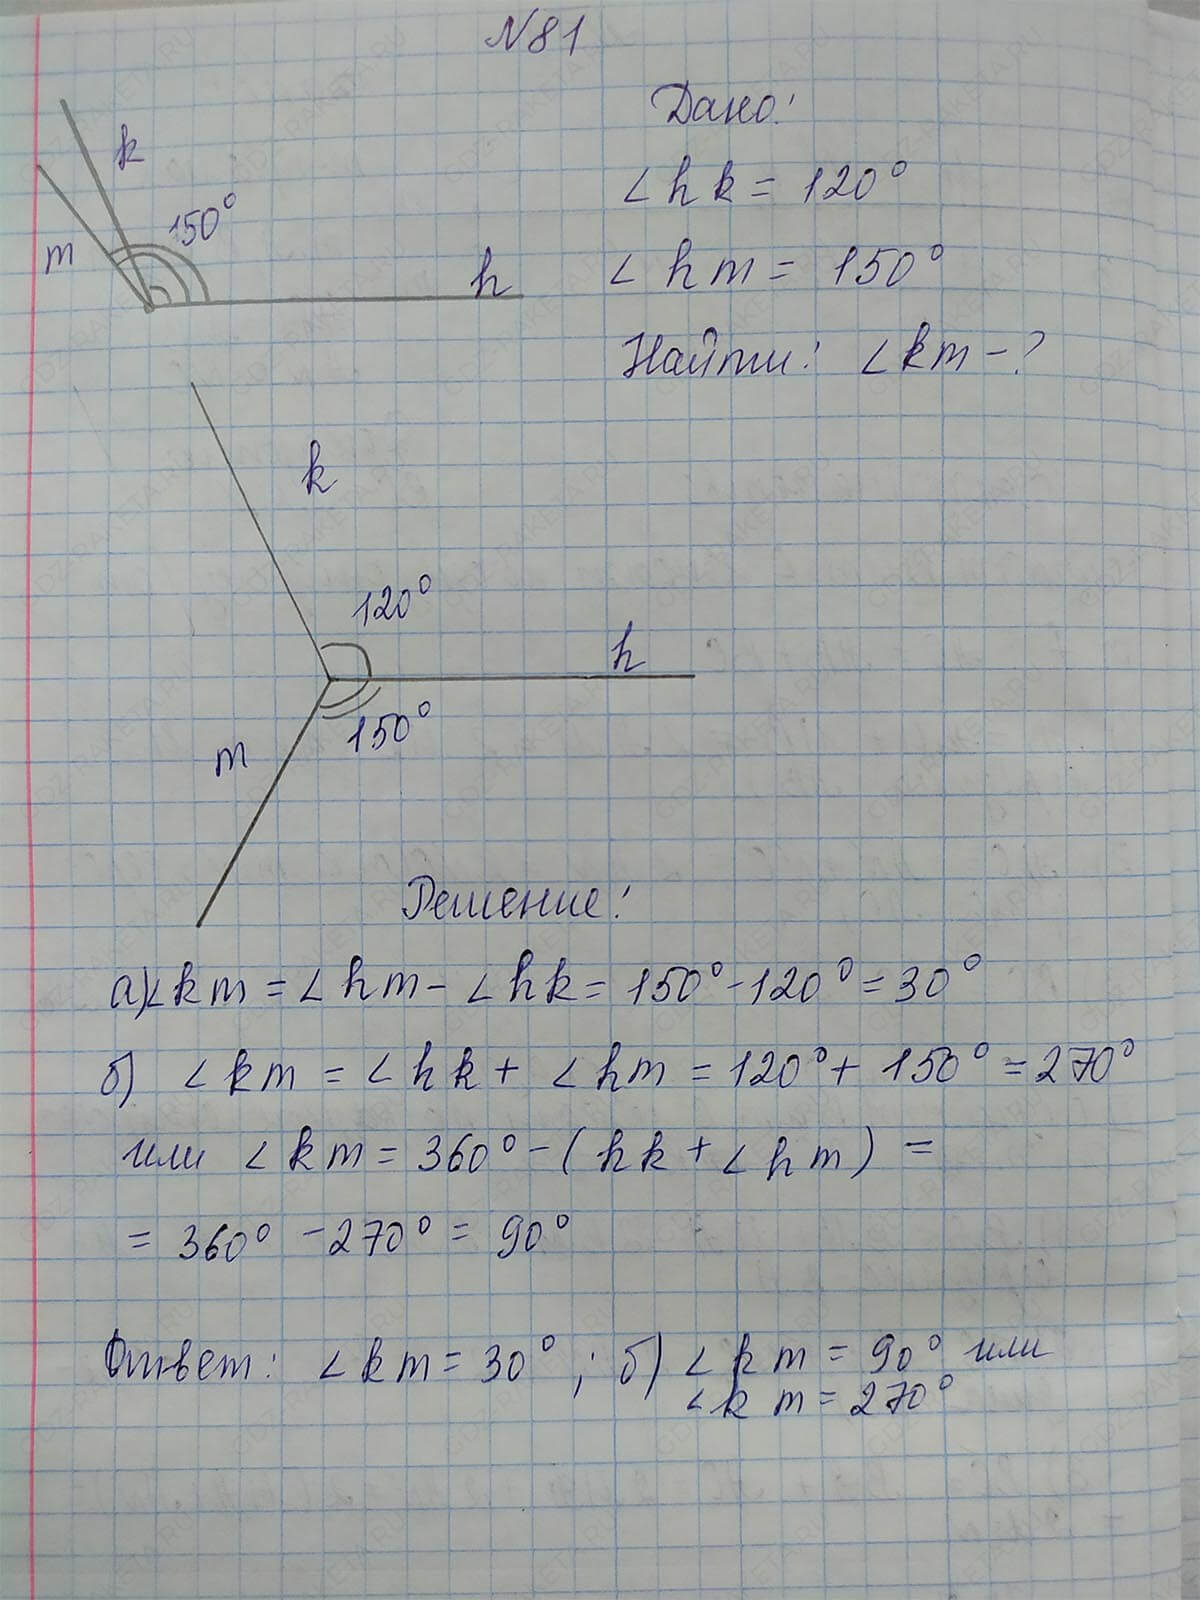 N81
Дано:
∠hk = 120°
∠hm = 150°
Найти: ∠km - ?
k
m
150°
h
k
120°
h
150°
m
Решение:
а) ∠km = ∠hm - ∠hk = 150° - 120° = 30°
б) ∠km = ∠hk + ∠hm = 120° + 150° = 270°
или ∠km = 360° - (hk + ∠hm) =
= 360° - 270° = 90°
Ответ: ∠km = 30° ; б) ∠km = 90° или
∠km = 270°
GDZ-RAKETA.RU